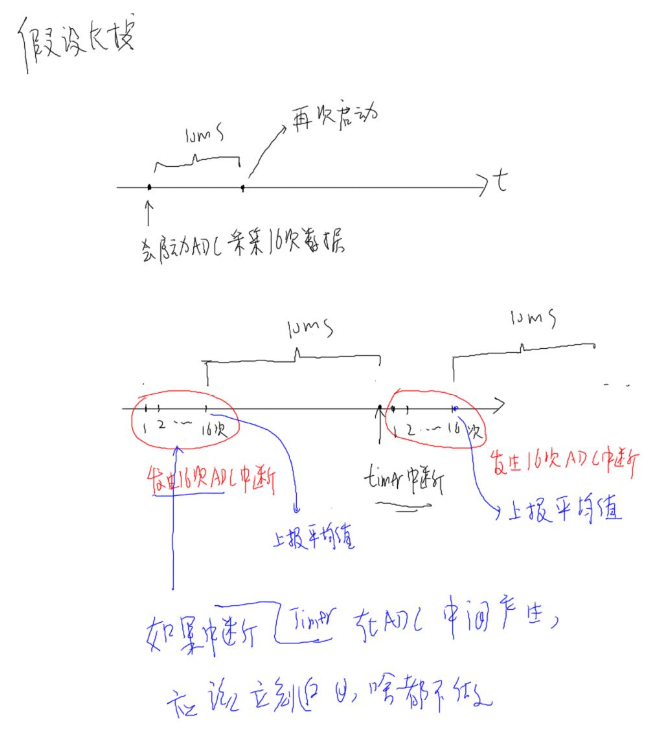 假设长按
10ms
再次启动
t
会启动ADC采集16次数据
10ms
10ms
1 2 … 16次
1 2 … 16次
发生16次ADC中断
timer中断
发生16次ADC中断
上报平均值
上报平均值
如果中断 Timer 在ADC中间产生,
应该立刻返回,啥都不做